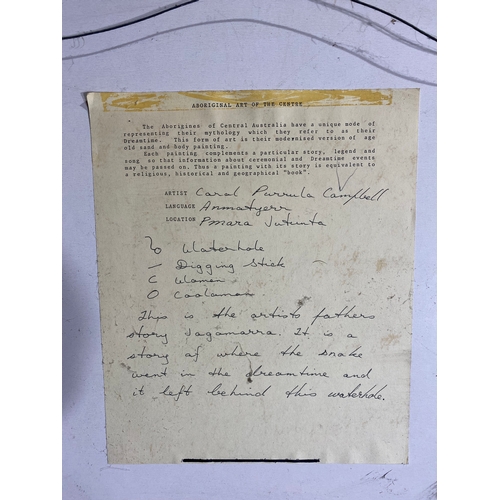 ABORIGINAL ART OF THE CENTRE
The Aborigines of Central Australia have a unique mode of
representing their mythology which they refer to as their
Dynamtime. This form of art is their modernised version of age
old sand and body painting.
Each painting complements a particular story, legend and
song so that information about ceremonial and Dreamtime events
may be passed on. Thus a painting with its story is equivalent to
a religious, historical and geographical "book".
ARTIST Carol Purrula Campbell
LANGUAGE Anmatyerr
LOCATION Pmara Jutunta
Waterhole
– Digging Stick
C Women
O Coolamon
This is the artists fathers
story Jagamarra. It is a
story of where the snake
went in the dreamtime and
it left behind this waterhole.